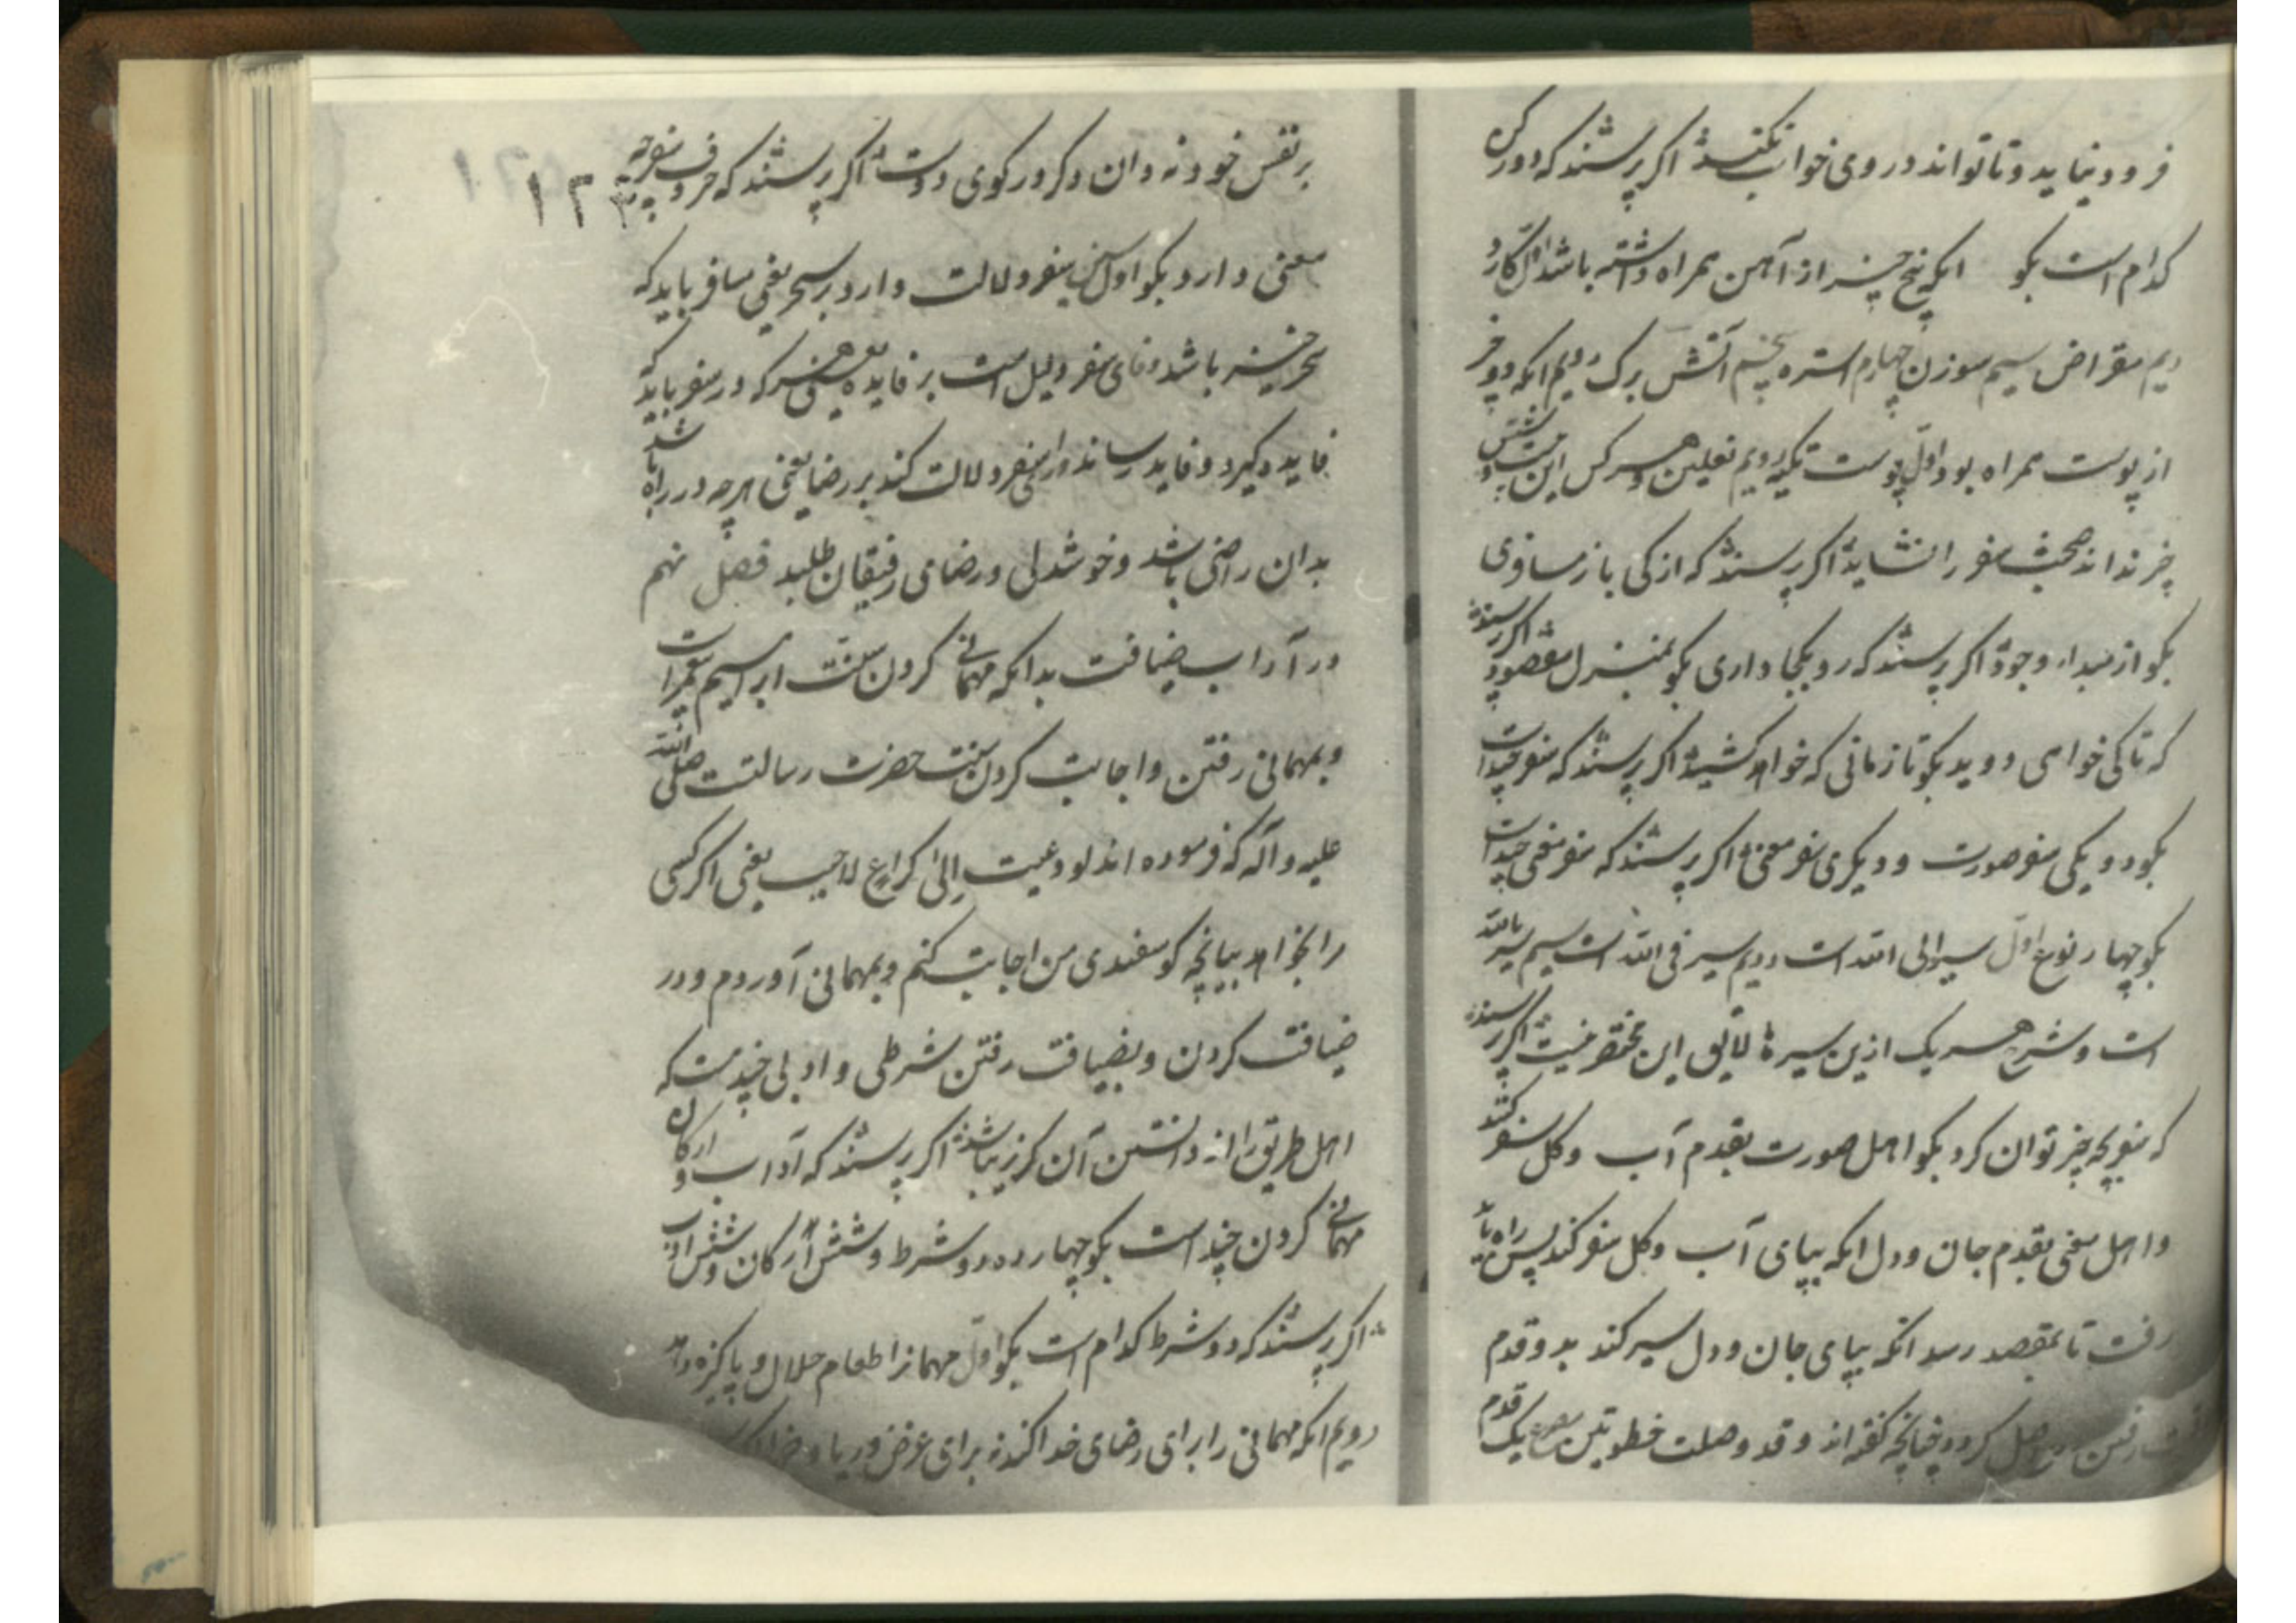 فرود نماید و تا تواند در وی خواب نکند اگر پرسند که دو رکن
کدام است بگو انکه پنج چیز از آهن همراه داشته باشد اول کارد
دیم مقراض سیم سوزن چهارم استره پنجم آتش برک دیم انکه دو چیز
از پوست همراه بود اول پوست تکیه دویم نعلین و هر کس این هشت
چیز نداند صحبت سفر را نشاید اگر پرسند که از کی باز مسافری
بگو از مبداء وجود اگر پرسند که رو بکجا داری بگو بمنزل مقصود اگر پرسند
که تا کی خواهی دوید بگو تا زمانی که خواهد کشید اگر پرسند که سفر چند است
بگو دو یکی سفر صورت و دیگری سفر معنی اگر پرسند که سفر معنی چند است
بگو چهار نوع اول سیر الی الله است دویم سیر فی الله است سیم سیر بالله
است و شرح هر یک ازین سیرها لایق این مختصر نیست اگر پرسند
که سفر بچه چیز توان کرد بگو اهل صورت بقدم آب و کل سفر کنند
و اهل معنی بقدم جان و دل انکه بپای آب و کل سفر کند پس راه باید
رفت تا بمقصد رسد انکه بپای جان و دل سیر کند بدو قدم
رفتن حاصل کردد چنانچه کفته اند و قد وصلت خطوتین مصرع یک قدم
بر نفس خود نه و ان دکر در کوی دوست اگر پرسند که حروف سفر چه
معنی دارد بگو اول سین سفر دلالت دارد بر سحر یعنی مسافر باید که
سحر خیز باشد و فای سفر دلیل است بر فایده یعنی هر که در سفر باید که
فایده گیرد و فایده رساند و رای سفر دلالت کند بر رضا یعنی هر چه در راه باشد
بدان راضی باشد و خوشدلی و رضای رفیقان طلبد فصل نهم
در آداب ضیافت بدانکه مهمانی کردن سنت ابراهیم پیغمبر است
و بمهمانی رفتن و اجابت کردن سنت حضرت رسالتست صلی الله
علیه و آله که فرموده اند لو دعیت الی کراع لاجیب یعنی اگر کسی
مرا بخواهد بپاچه کوسفندی من اجابت کنم و بمهمانی آو روم و در
ضیافت کردن و بضیافت رفتن شرطی و ادبی چندست که
اهل طریق را از دانستن آن کزیر نباشد اگر پرسند که آداب و ارکان
مهمانی کردن چند است بگو چهارده دو شرط و شش ارکان و شش ادب
اگر پرسند که دو شرط کدام است بگو اول مهمانرا طعام حلال و پاکیزه دهد
دویم انکه مهمانی را برای رضای خدا کند نه برای غرض و ریا و